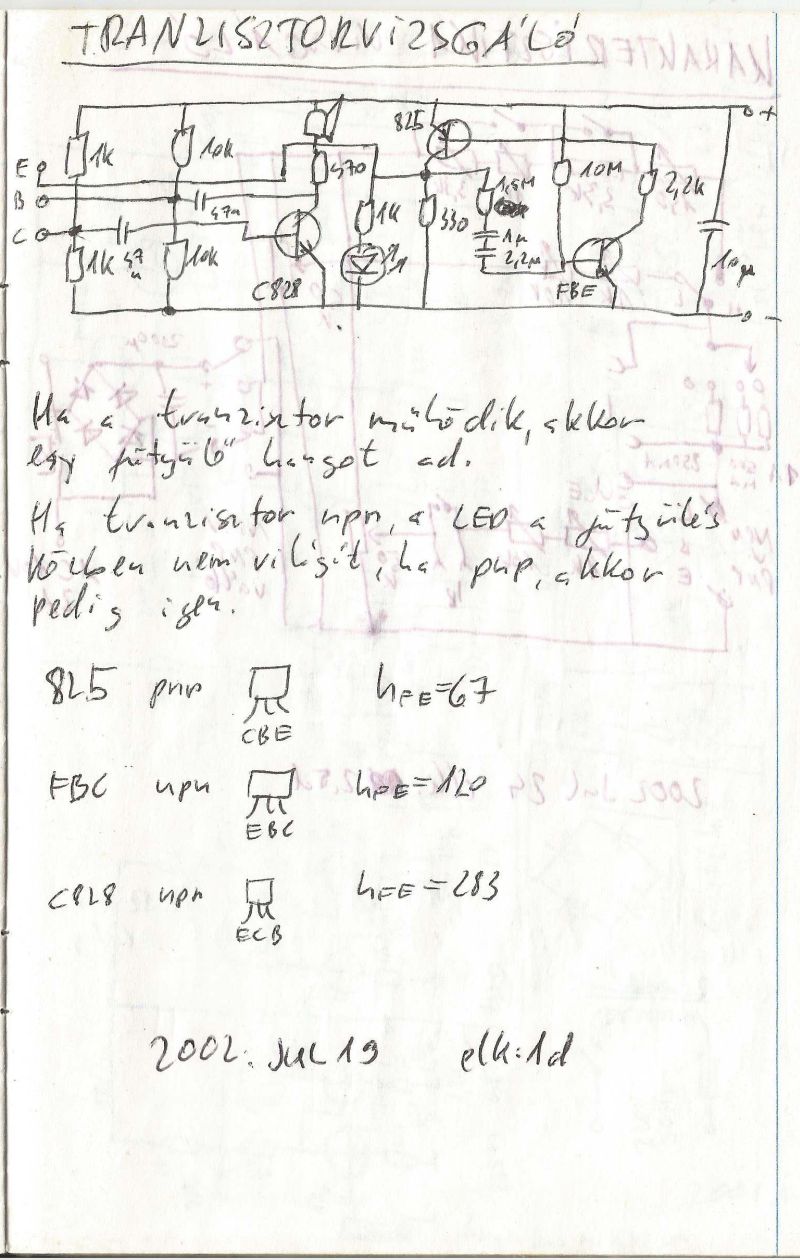 TRANZISZTORVIZSGÁLÓ
+
825
1K
10K
E
470
10M
2,2K
1,5M
B
47n
1K
330
1µ
C
2,2µ
10µ
1K
47n
10K
C828
FBE
-
Ha a tranzisztor működik, akkor
egy fütyülő hangot ad.
Ha tranzisztor npn, a LED a fütyülés
közben nem világít, ha pnp, akkor
pedig igen.
825 pnp hFE=67
CBE
FBC npn hFE=120
EBC
C828 npn hFE=283
ECB
2002. JUL 19 elk:1d